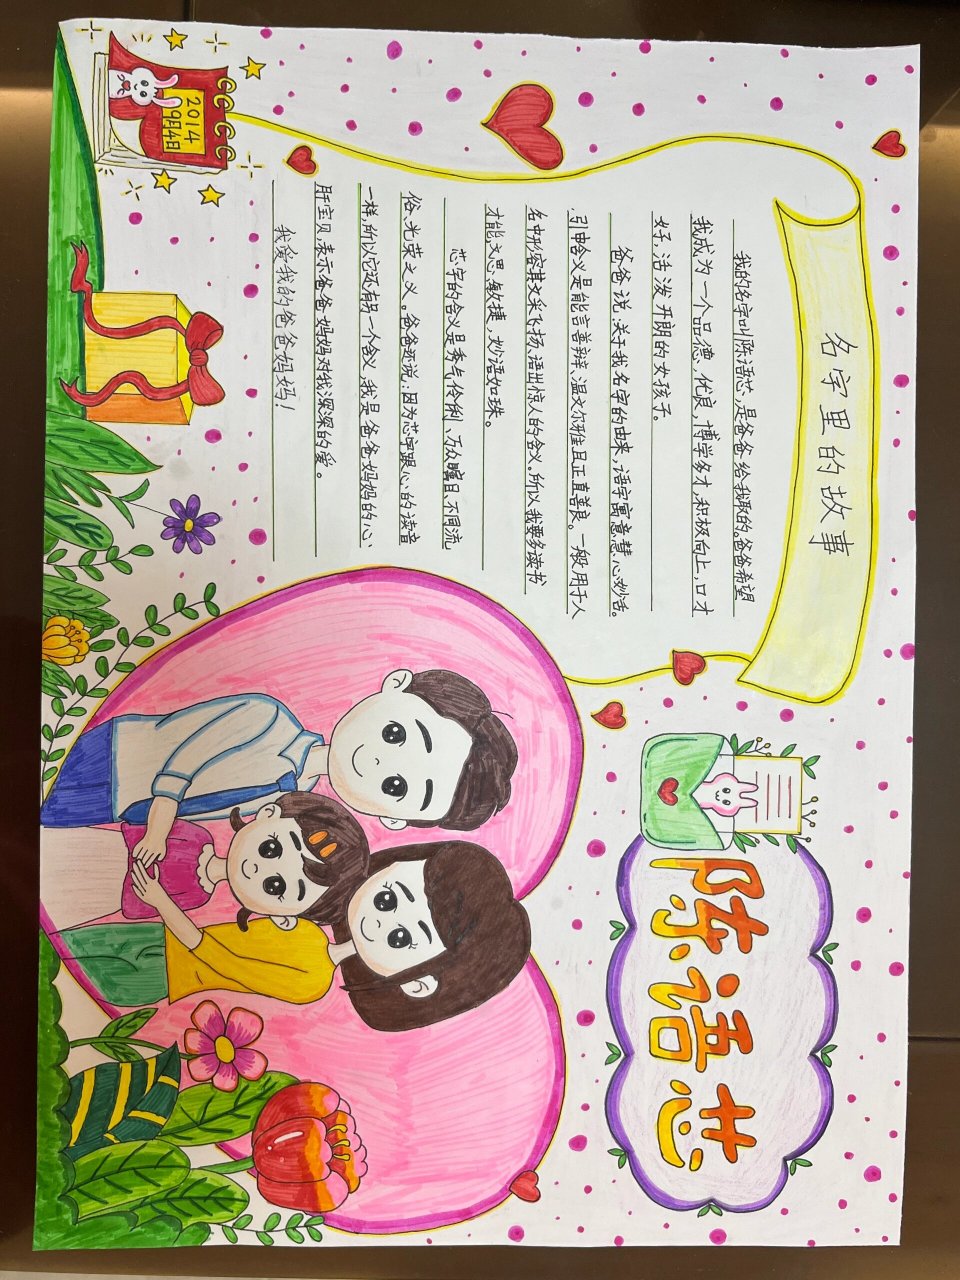 名字里的故事
我的名字叫陈语芯,是爸爸给我取的。爸爸希望
我成为一个品德,优良,博学多才,积极向上,口才
好,活泼开朗的女孩子。
爸爸说:关于我名字的由来,语字寓意慧心妙舌。
引申含义是能言善辩、温文尔雅且正直善良。一般用于人
名中形容其文采飞扬、语出惊人的含义。所以我要多读书
才能文思敏捷,妙语如珠。
芯字的含义是秀气伶俐、万众瞩目、不同流
俗、光荣之义。爸爸还说:因为芯字跟心的读音
一样,所以它还有另一个含义,我是爸爸妈妈的心
肝宝贝,表示爸爸妈妈对我深深的爱。
我爱我的爸爸妈妈!
陈语芯
2014
9月4日